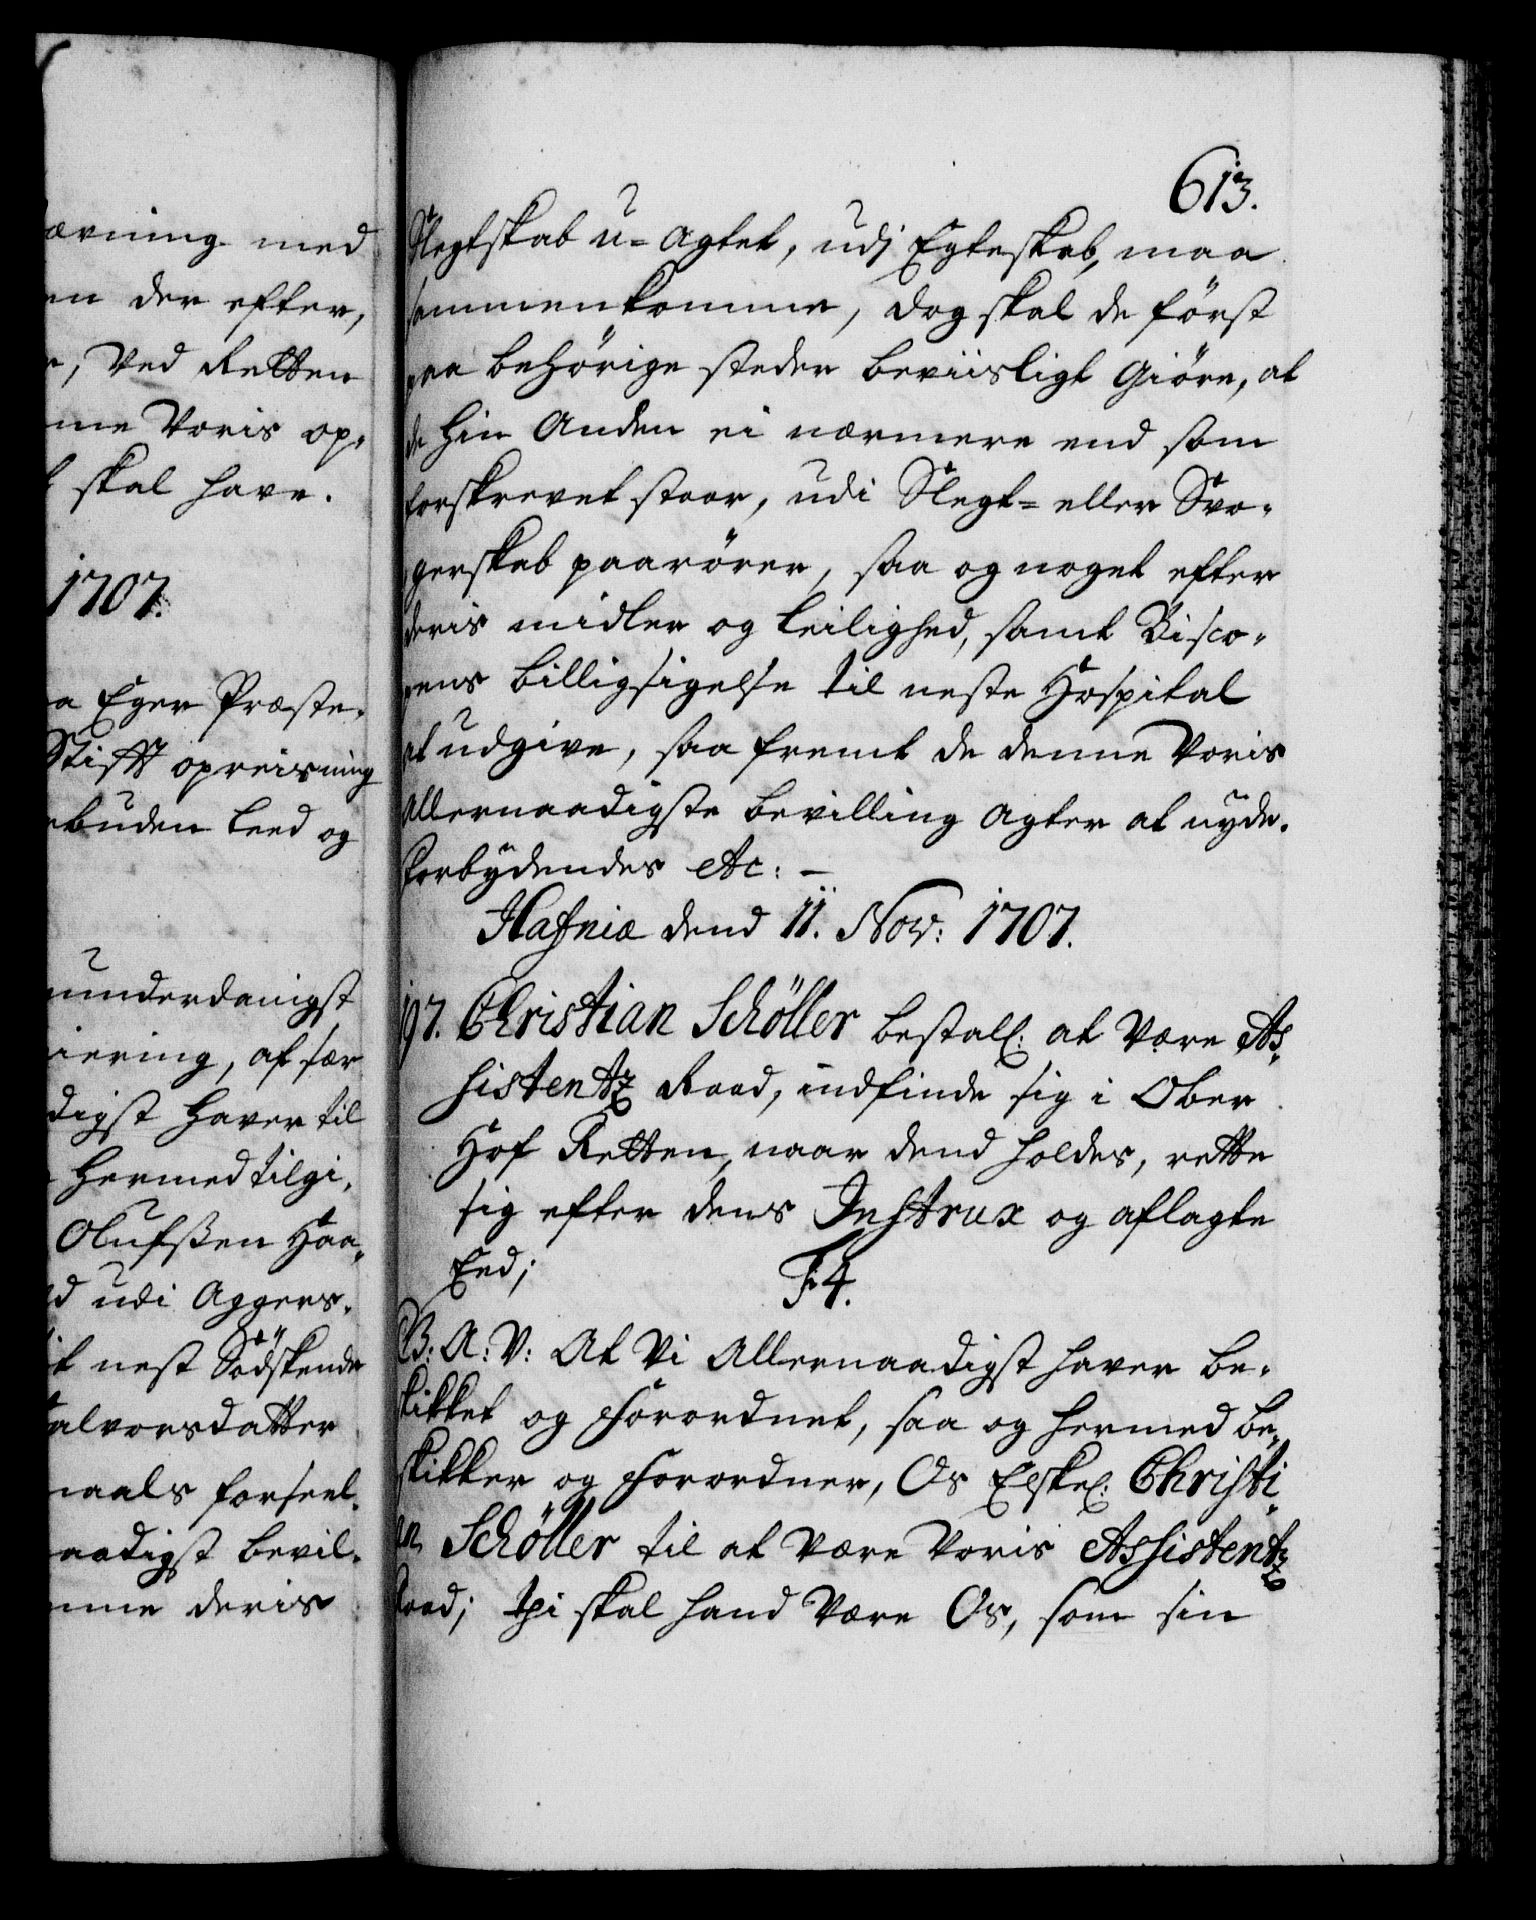 ævning med
en der efter,
r, Ved Retten
me Voris op-
skal have.
1707.
a Eger Præste-
Stifft opreisning
rbuden Leed og
underdanigst
iering, at før
digst haver til
hermed tilgi-
Olufsßen Haa-
d udi Aggers-
it nest Södskende
alvorsdatter
maals forseel-
aadigst bevil-
nne deris
613.
Slegtskab u-agtet, udj Egteskab, maa
sammenkomme, dog skal de först
paa behörige steder beviisligt Giöre, at
de hin Anden ei nærmere end som
forskrevet staar, udi Slegt- eller Svo-
gerskab paarörer, saa og noget efter
deris midler og Leilighed, samt Bisco-
pens billigsigelse til neste Hospital
at udgive, saafremt de denne Voris
Allernaadigste bevilling Agter at nyde.
Forbydendes etc: —
Hafniæ dend 11. Nov: 1707.
197. Christian Schöller bestall: at Være As-
sistentz Raad, indfinde sig i Ober
Hof Retten, naar dend holdes, rette
sig efter dens Instrux og aflagte
Eed;
F: 4.
C. B. A: V: At Vi Allernaadigst haver be-
skikket og Forordnet, saa og hermed be-
skikker og Forordner, Os Elskel: Christi-
an Schöller til at Være Voris Assistentz
Raad; thi skal hand Være Os, som sin